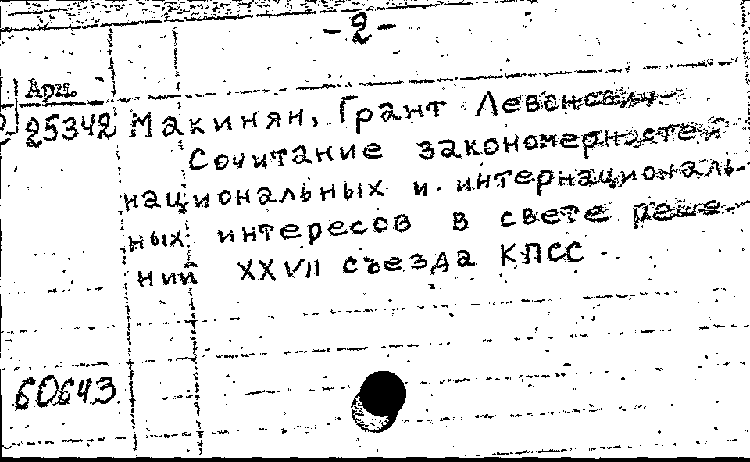 -2-
Арм.
25342 Макинян, Грант Левонович
Сочитание закономерностей
национальных и интернациональ-
ных интересов в свете реше-
ний XXVII съезда КПСС
60643